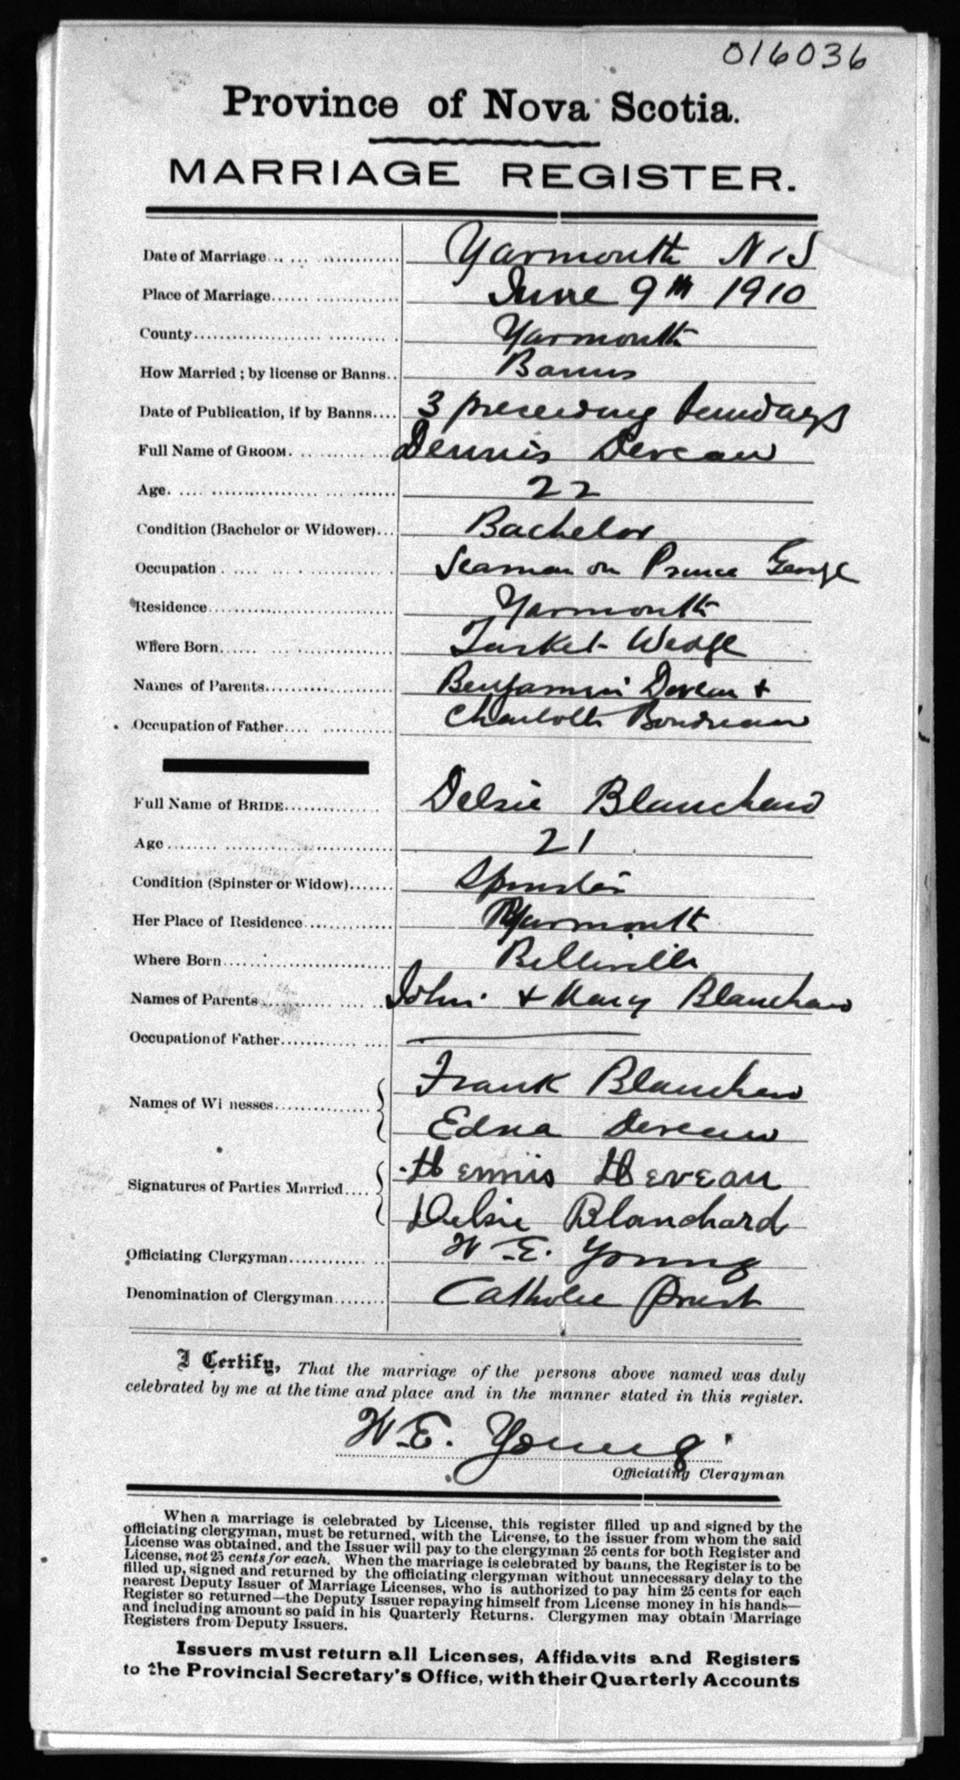 016036
Province of Nova Scotia.
MARRIAGE REGISTER.
Date of Marriage Yarmouth N.S
Place of Marriage June 9th 1910
County Yarmouth
How Married; by license or Banns Banns
Date of Publication, if by Banns 3 preceeding Sundays
Full Name of GROOM Dennis Deveau
Age 22
Condition (Bachelor or Widower) Bachelor
Occupation Seaman on Prince George
Residence Yarmouth
Where Born Tusket Wedge
Names of Parents Benjamin Deveau +
Occupation of Father Charlotte Boudreau
Full Name of BRIDE Delsie Blanchard
Age 21
Condition (Spinster or Widow) Spinster
Her Place of Residence Yarmouth
Where Born Belleville
Names of Parents John + Mary Blanchard
Occupation of Father
Frank Blanchard
Names of Wi nesses
Edna Deveau
Dennis Deveau
Signatures of Parties Married
Delsie Blanchard
Officiating Clergyman W. E. Young
Denomination of Clergyman Catholic Priest
I Certify, That the marriage of the persons above named was duly
celebrated by me at the time and place and in the manner stated in this register.
W. E. Young
Officiating Clergyman
When a marriage is celebrated by License, this register filled up and signed by the
officiating clergyman, must be returned, with the License, to the issuer from whom the said
License was obtained, and the Issuer will pay to the clergyman 25 cents for both Register and
License, not 25 cents for each. When the marriage is celebrated by banns, the Register is to be
filled up, signed and returned by the officiating clergyman without unnecessary delay to the
nearest Deputy Issuer of Marriage Licenses, who is authorized to pay him 25 cents for each
Register so returned—the Deputy Issuer repaying himself from License money in his hands—
and including amount so paid in his Quarterly Returns. Clergymen may obtain Marriage
Registers from Deputy Issuers.
Issuers must return all Licenses, Affidavits and Registers
to the Provincial Secretary's Office, with their Quarterly Accounts